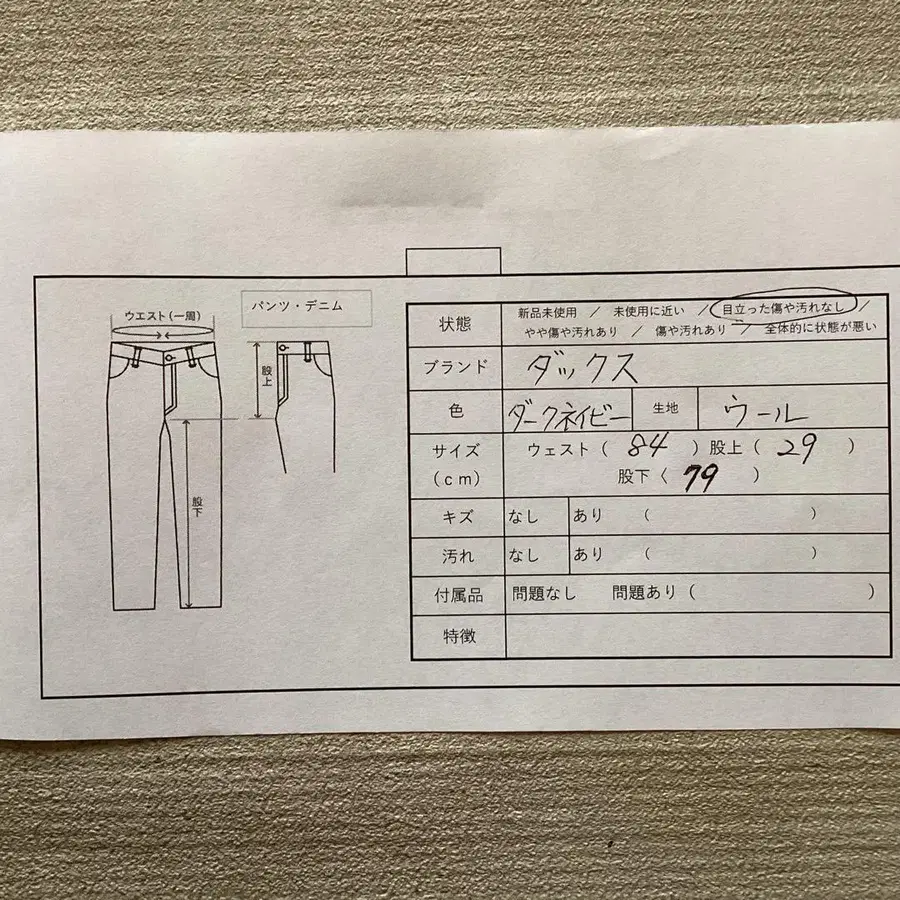 ウエスト(一周)
パンツ・デニム
股上
股下
状態 新品未使用 / 未使用に近い / 目立った傷や汚れなし /
やや傷や汚れあり / 傷や汚れあり / 全体的に状態が悪い
ブランド ダックス
色 ダークネイビー 生地 ウール
サイズ ウェスト( 84 ) 股上( 29 )
(cm) 股下( 79 )
キズ なし あり ( )
汚れ なし あり ( )
付属品 問題なし 問題あり( )
特徴